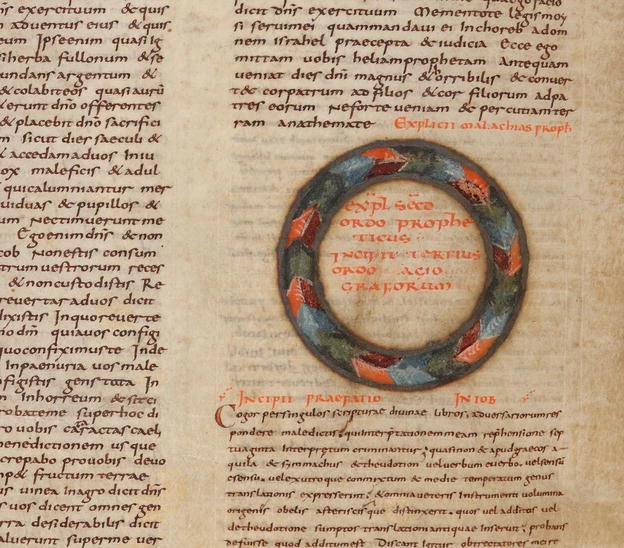 dn̄s exercituum &quis
s aduentus eius &quis
eum Ipseenim quasi ig
siherba fullonum &se
undans argentum &
&colabiteos quasi aurū
&erunt dn̄o offerentes
&placebit dn̄o sacrifici
n sicut dies saeculi &
& accedam aduos In iu
ox maleficis & adul
qui calumniantur mer
uiduas & pupillos &
um Nectimuerunt me
Ego enim dn̄s & non
cob Non estis consum
trum uestrorum reces
&non custodistis Re
reuertar aduos dicit
dixistis Inquo reuerte
dm̄ quia uos configi
quo confiximus te Inde
Inpaenuria uos male
figistis gens tota In
In horreum & sit ci
robate me super hoc di
ro uobis cataractas caeli
benedictionem usque
crepabo pro uobis deuo
fructum terrae
us uinea In agro dicit dn̄s
uos dicent omnes gen
rra desiderabilis dicit
aluerunt super me uer
dn̄s exercituum Mementote legis moy
si serui mei quam mandaui ei In choreb ad om
nem israhel praecepta & iudicia Ecce ego
mittam uobis heliam prophetam Antequam
ueniat dies dn̄i magnus & orribilis & conuer
t& cor patrum ad filios & cor filiorum ad pa
tres eorum Ne forte ueniam & percutiam ter
ram anathemate Explicit malachias proph
expl secd
ordo prophe
ticus
Incipit tertius
ordo agio
graforum
Incipit praefatio In iob
Cogor per singulos scripturae diuinae libros, aduersariorum res
pondere maledictis, qui interpr&ationem meam reprehensione sep
tuaginta Interpretum criminantur, quasi non & apud graecos a
quila & symmachus & theudotion uel uerbum e uerbo, uel sensū
e sensu, uel ex utroque conmixtum & medie temperatum genus
translationis expresserint, & omnia ueteris Instrumenti uolumina
origenis obelis asteriscisque distinxerit, quos uel additos uel
de theudotione sumptos translationi antiquae Inseruit, probans
defuisse quod additum est Discant Igitur obtrectatores mei re